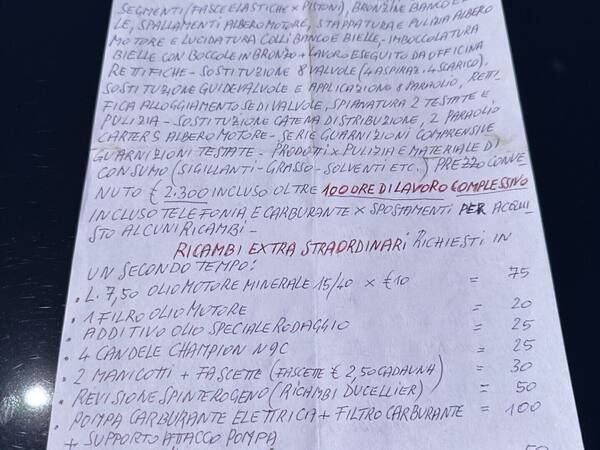 SEGMENTI (FASCE ELASTICHE X PISTONI), BRONZINE BANCO E
LE, SPALLAMENTI ALBERO MOTORE, STAPPATURA E PULIZIA ALBERO
MOTORE E LUCIDATURA COLLI BANCO E BIELLE, IMBOCCOLATURA
BIELLE CON BOCCOLE IN BRONZO + LAVORO ESEGUITO DA OFFICINA
RETTIFICHE - SOSTITUZIONE 8 VALVOLE (4 ASPIRAZ. 4 SCARICO).
SOSTITUZIONE GUIDE VALVOLE E APPLICAZIONE 8 PARAOLIO, RETTI-
FICA ALLOGGIAMENTO SEDI VALVOLE, SPIANATURA 2 TESTATE E
PULIZIA - SOSTITUZIONE CATENA DISTRIBUZIONE, 2 PARAOLIO
CARTERS ALBERO MOTORE - SERIE GUARNIZIONI COMPRENSIVE
GUARNIZIONI TESTATE - PRODOTTI X PULIZIA E MATERIALE DI
CONSUMO (SIGILLANTI - GRASSO - SOLVENTI ETC.) PREZZO CONVE
NUTO € 2.300 INCLUSO OLTRE 100 ORE DI LAVORO COMPLESSIVO
INCLUSO TELEFONIA E CARBURANTE X SPOSTAMENTI PER ACQUI
STO ALCUNI RICAMBI -
RICAMBI EXTRA STRAORDINARI RICHIESTI IN
UN SECONDO TEMPO:
• L. 7,50 OLIO MOTORE MINERALE 15/40 X €10 = 75
• 1 FILRO OLIO MOTORE = 20
• ADDITIVO OLIO SPECIALE RODAGGIO = 25
• 4 CANDELE CHAMPION N9C = 25
• 2 MANICOTTI + FASCETTE (FASCETE € 2,50 CADAUNA) = 30
• REVISIONE SPINTEROGENO (RICAMBI DUCELLIER) = 50
• POMPA CARBURANTE ELETTRICA + FILTRO CARBURANTE = 100
+ SUPPORTO ATTACCO POMPA